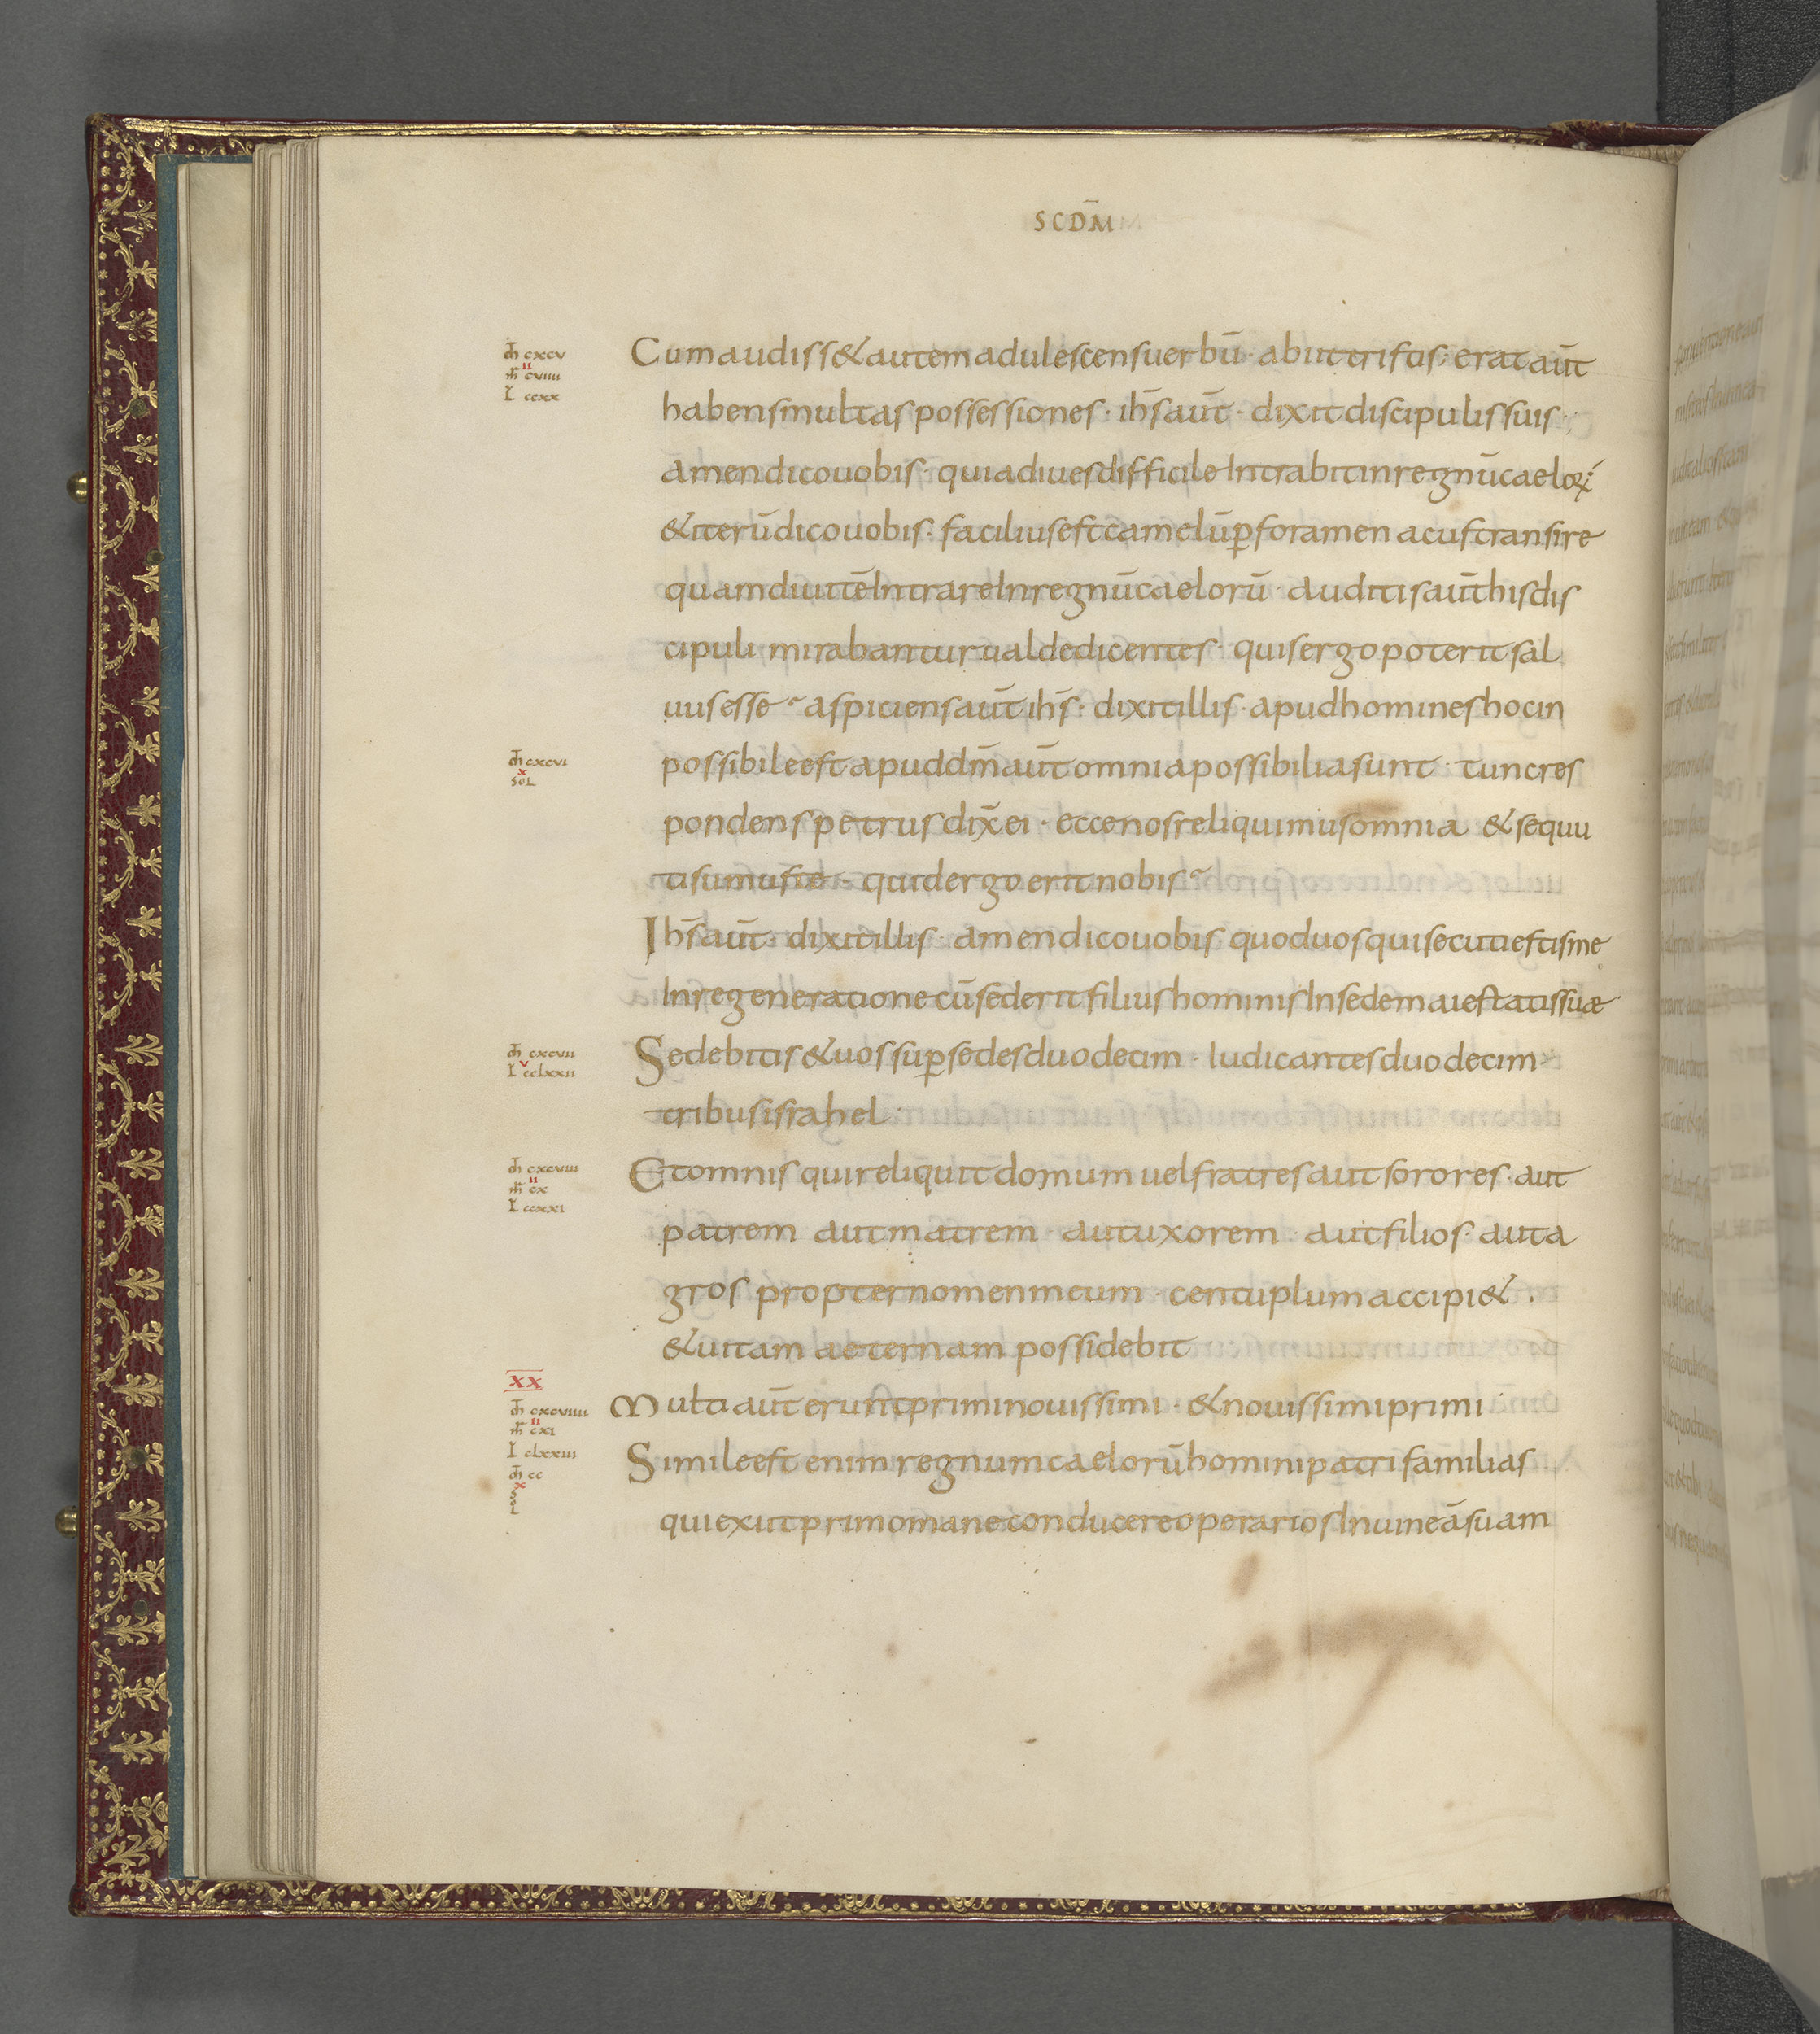 SCDM̅
m̅ cxcv
II
m̅r cviiii
L̅ ccxx
Cum audiss& autem adulescens uerbū· abiit tristis· erat aut̄
habens multas possessiones· ih̅s aut̄· dixit discipulis suis·
amen dico uobis· quia diues difficile Intrabit in regnū caeloꝝ
& iterū dico uobis· facilius est camelū ꝑ foramen acus transire
quam diuitē Intrare In regnū caelorū· Auditis aut̄ his dis
cipuli mirabantur ualde dicentes· quis ergo poterit sal
uus esse· aspiciens aut̄ ih̅s· dixit illis· apud homines hoc in
m̅ cxcvi
X
sol
possibile est apud dm̅ aut̄ omnia possibilia sunt· tunc res
pondens petrus dix̄ ei· ecce nos reliquimus omnia & sequu
ti sumus te· quid ergo erit nobis
Ih̅s aut̄· dixit illis· amen dico uobis quod uos qui secuti estis me
In regeneratione cū sederit filius hominis In sede maiestatis suæ
m̅ cxcvii
V
L̅ cclxxii
Sedebitis & uos suꝑ sedes duodecim· Iudicantes duodecim
tribus israhel·
m̅ cxcviii
II
m̅r cx
L̅ ccxxi
Et omnis qui reliquit domum uel fratres aut sorores· aut
patrem aut matrem· aut uxorem· aut filios· aut a
gros propter nomen meum· centuplum accipi&·
& uitam aeternam possidebit
XX
m̅ cxcviiii
II
m̅r cxi
L̅ clxxiii
Multi aut̄ erunt primi nouissimi· & nouissimi primi
m̅ cc
X
sol
Simile est enim regnum caelorū homini patri familias
qui exiit primo mane conducere operarios In uineā suam